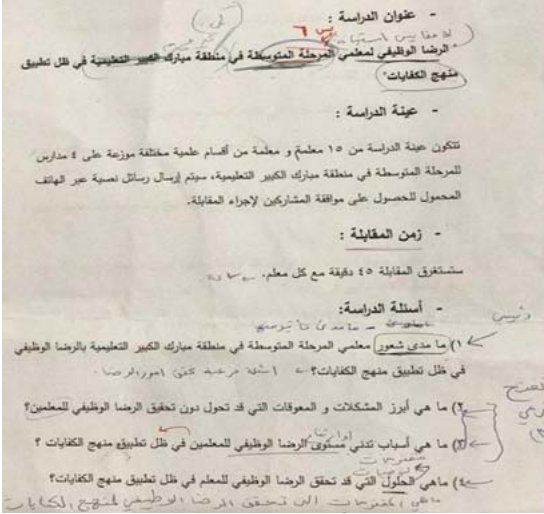 - عنوان الدراسة :
"الرضا الوظيفي لمعلمي المرحلة المتوسطة في منطقة مبارك الكبير التعليمية في ظل تطبيق
منهج الكفايات"
- عينة الدراسة :
تتكون عينة الدراسة من ١٥ معلمة و معلمة من أقسام علمية مختلفة موزعة على ٤ مدارس
للمرحلة المتوسطة في منطقة مبارك الكبير التعليمية، سيتم إرسال رسائل نصية عبر الهاتف
المحمول للحصول على موافقة المشاركين لإجراء المقابلة.
- زمن المقابلة :
ستستغرق المقابلة ٤٥ دقيقة مع كل معلم.
- أسئلة الدراسة:
١) ما مدى شعور معلمي المرحلة المتوسطة في منطقة مبارك الكبير التعليمية بالرضا الوظيفي
في ظل تطبيق منهج الكفايات؟
٢) ما هي أبرز المشكلات و المعوقات التي قد تحول دون تحقيق الرضا الوظيفي للمعلمين؟
٣) ما هي أسباب تدني مستوى الرضا الوظيفي للمعلمين في ظل تطبيق منهج الكفايات ؟
مقترحات
٤) ما هي الحلول التي قد تحقق الرضا الوظيفي للمعلم في ظل تطبيق منهج الكفايات؟
ماهي المقترحات التي تحقق الرضا الوظيفي لمنهج الكفايات